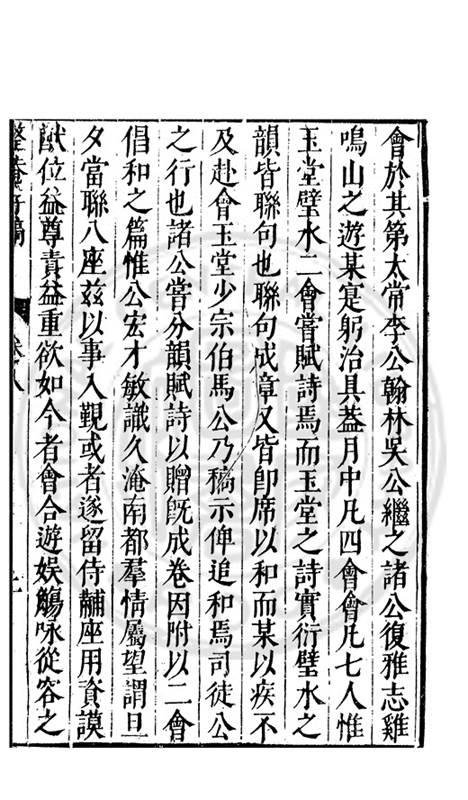 會於其第太常李公翰林吳公繼之諸公復雅志雞
鳴山之遊某寔躬治具葢月中凡四會會凡七人惟
玉堂璧水二會嘗賦詩焉而玉堂之詩實衍璧水之
韻皆聯句也聯句成章又皆卽席以和而某以疾不
及赴會玉堂少宗伯馬公乃稿示俾追和焉司徒公
之行也諸公嘗分韻賦詩以贈旣成卷因附以二會
倡和之篇惟公宏才敏識久淹南都羣情屬望謂旦
夕當聯八座玆以事入覲或者遂留侍黼座用資謨
猷位益尊責益重欲如今者會合遊娛觴咏從容之